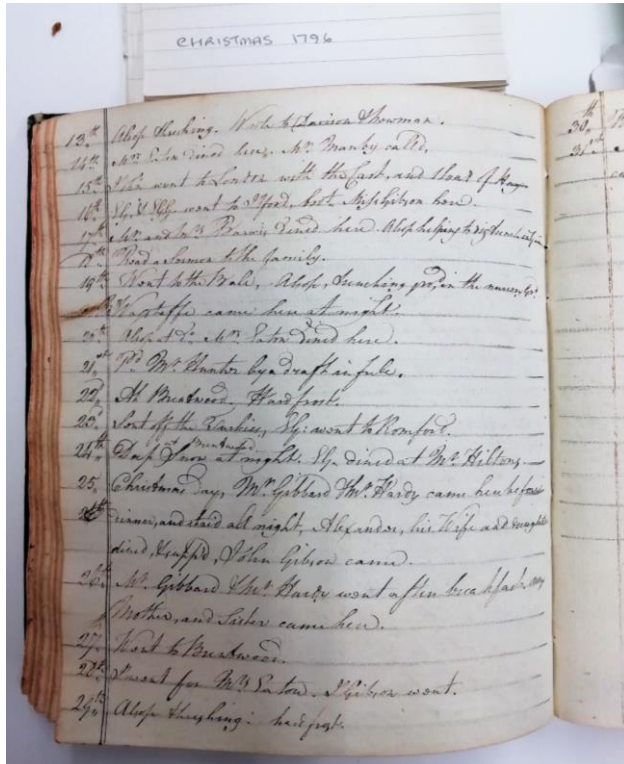 CHRISTMAS 1796
13.th Alsop thrashing. Wrote to Davison Showman.
14th Mrs Eaton dined here, Mr. Manby called.
15th John went to London with the Cart, and Load of Hay
16th Ely. & went to Ilford, both. Miss Gibson here.
17th Mr. and Mrs dined here. Alsop helping to
18th Read a Sermon to the family.
19th Went to the Bale, Alsop, trenching in the nursery
Wagstaffe came here at night.
20th Alsop at Do. Mrs. Eaton dined here.
21st Pd Mr Hunter by a draft in full.
22d At Brentwood. Hard frost.
23d Sent off the Turkies, Ely: went to Romford.
24th Deep Snow at night. Ely dined at Mr. Hiltons.
Brentwood
25. Christmas day, Mr. Gibbard & Mr. Hardy came here before
dinner, and staid all night, Alexander, his Wife and daughter
dined, & supp'd, John Gibson came.
26th Mr. Gibbard & Mr. Hardy went after breakfast. my
Mother, and Sister came here.
27th Went to Brentwood.
28th I went for Mrs Eaton. J Gibson went.
29th Alsop thrashing: hard frost.
30th
31st